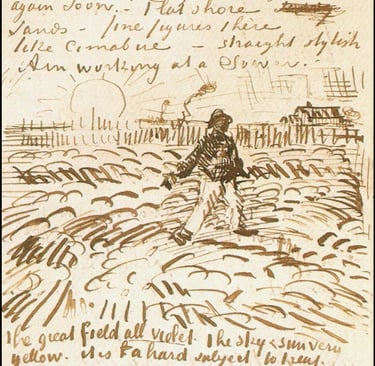 again soon. - Flat shore
sands - fine figures there
like Cimabue - straight stylish
Am working at a Sower.
The great field all violet. The sky & sun very
yellow. it is a hard subject to treat.